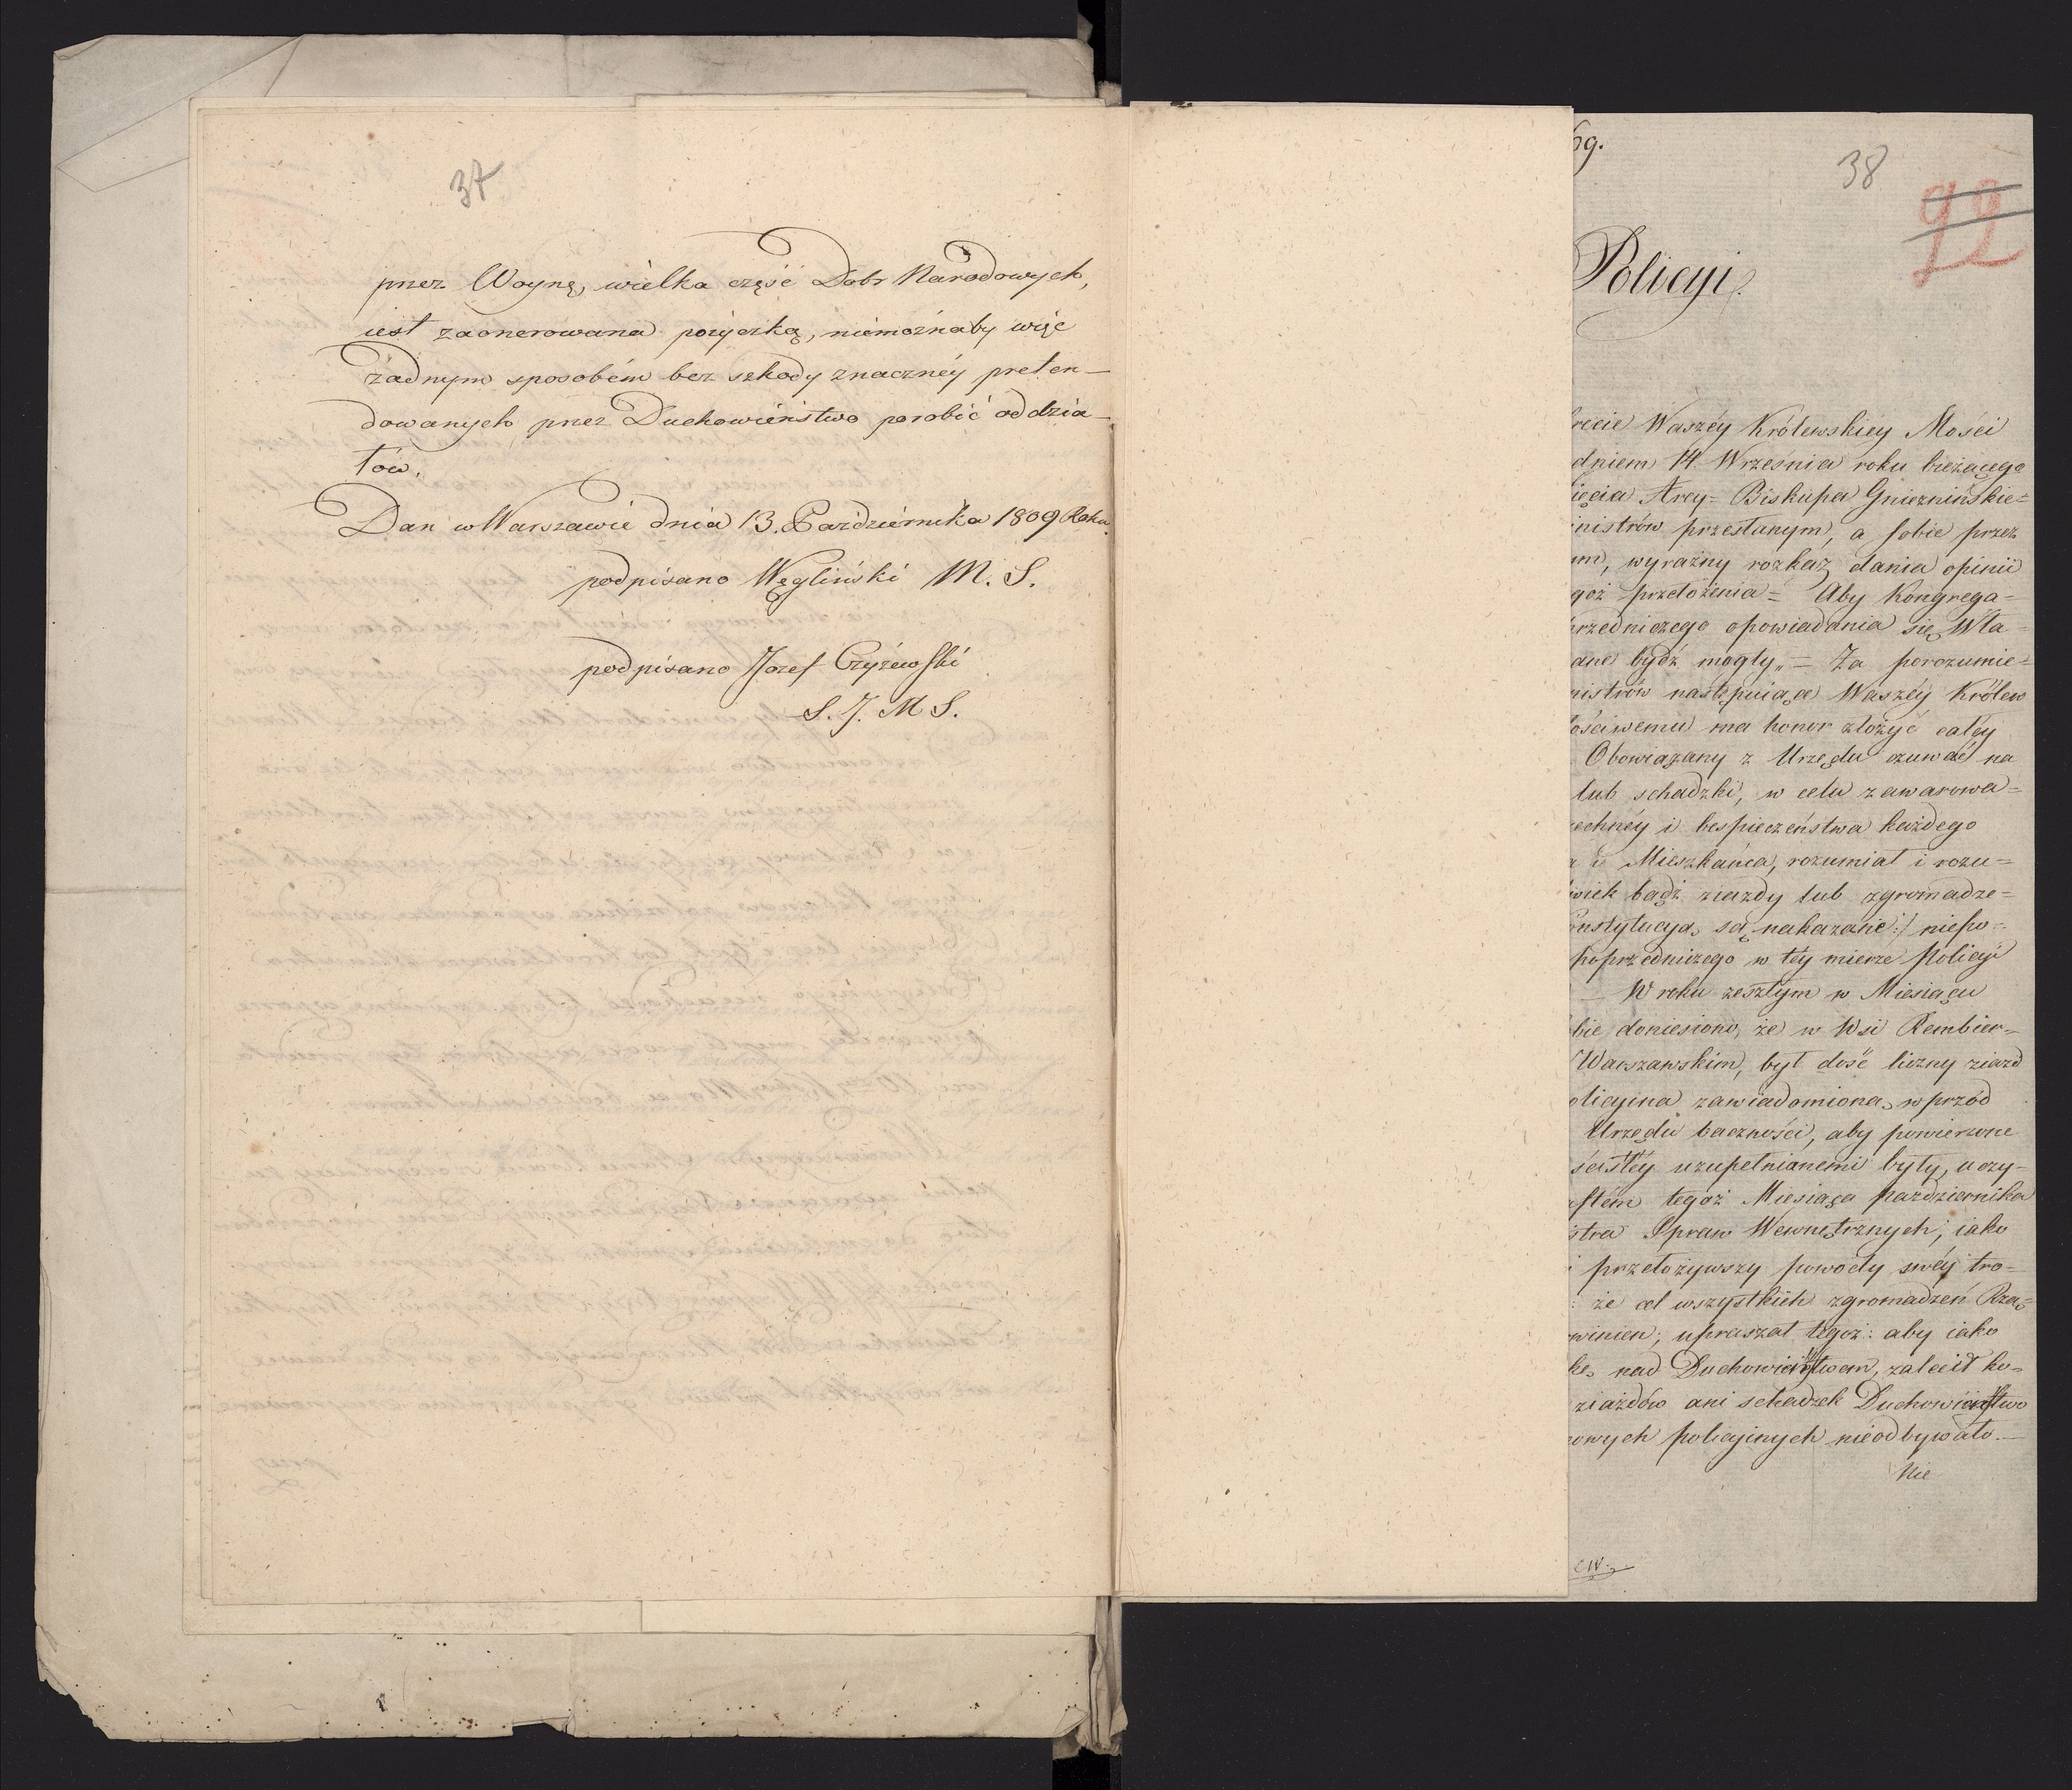 37
przez Woynę, wielka część Dobr Narodowych,
iest zaonerowana pożyczką, niemożnaby więc
żadnym sposobém bez szkody znacznéy preten—
dowanych przez Duchowieństwo porobić oddzia—
łów.
Dan w Warszawie dnia 13. Października 1809 Roku.
podpisano Węgliński M. S.
podpisano Jozef Czyżewski
S. J. M S.
69.
38
92
Policyi.
recie Waszéy Królewskiéy Mości
dniem 14. Września roku bieżącego
ięcia Arcy= Biskupa Gnieznińskie=
nistrów przesłanym, a sobie przez
m, wyraźny rozkaz dania opinii
goż przełożenia= Aby Kongrega=
przedniczego opowiadania się Wła=
ane bydź mogły„= Za porozumie=
nistrów następuiącą Waszéy Królew
ościwemu ma honor złożyć całéy
Obowiązany z Urzędu czuwać na
lub schadzki, w celu zawarowa=
echnéy i bespieczeństwa każdego
i Mieszkańca, rozumiał i rozu=
wiek bądź ziazdy lub zgromadze=
onstytucyą są nakazane:/ niepo=
poprzedniczego w téy mierze Policyi
— W roku zeszłym w Miesiącu
bie doniesiono, że w Wsi Rembier=
Warszawskim, był dość liczny ziazd
olicyina zawiadomiona, wprzód
Urzędu baczności, aby powierzone
ścisłéy uzupełnianemi były, uczy-
stém tegoż Miesiąca października
stra Spraw Wewnętrznych, iako
i przełożywszy powody swéy tro=
: że cel wszystkich zgromadzeń Rzą=
winien; upraszał tegoż: aby iako
kę nad Duchowieństwem, zalecił ko=
ziazdów ani schadzek Duchowieństwo
owych policyinych nieodbywało.—
Nie
CW.